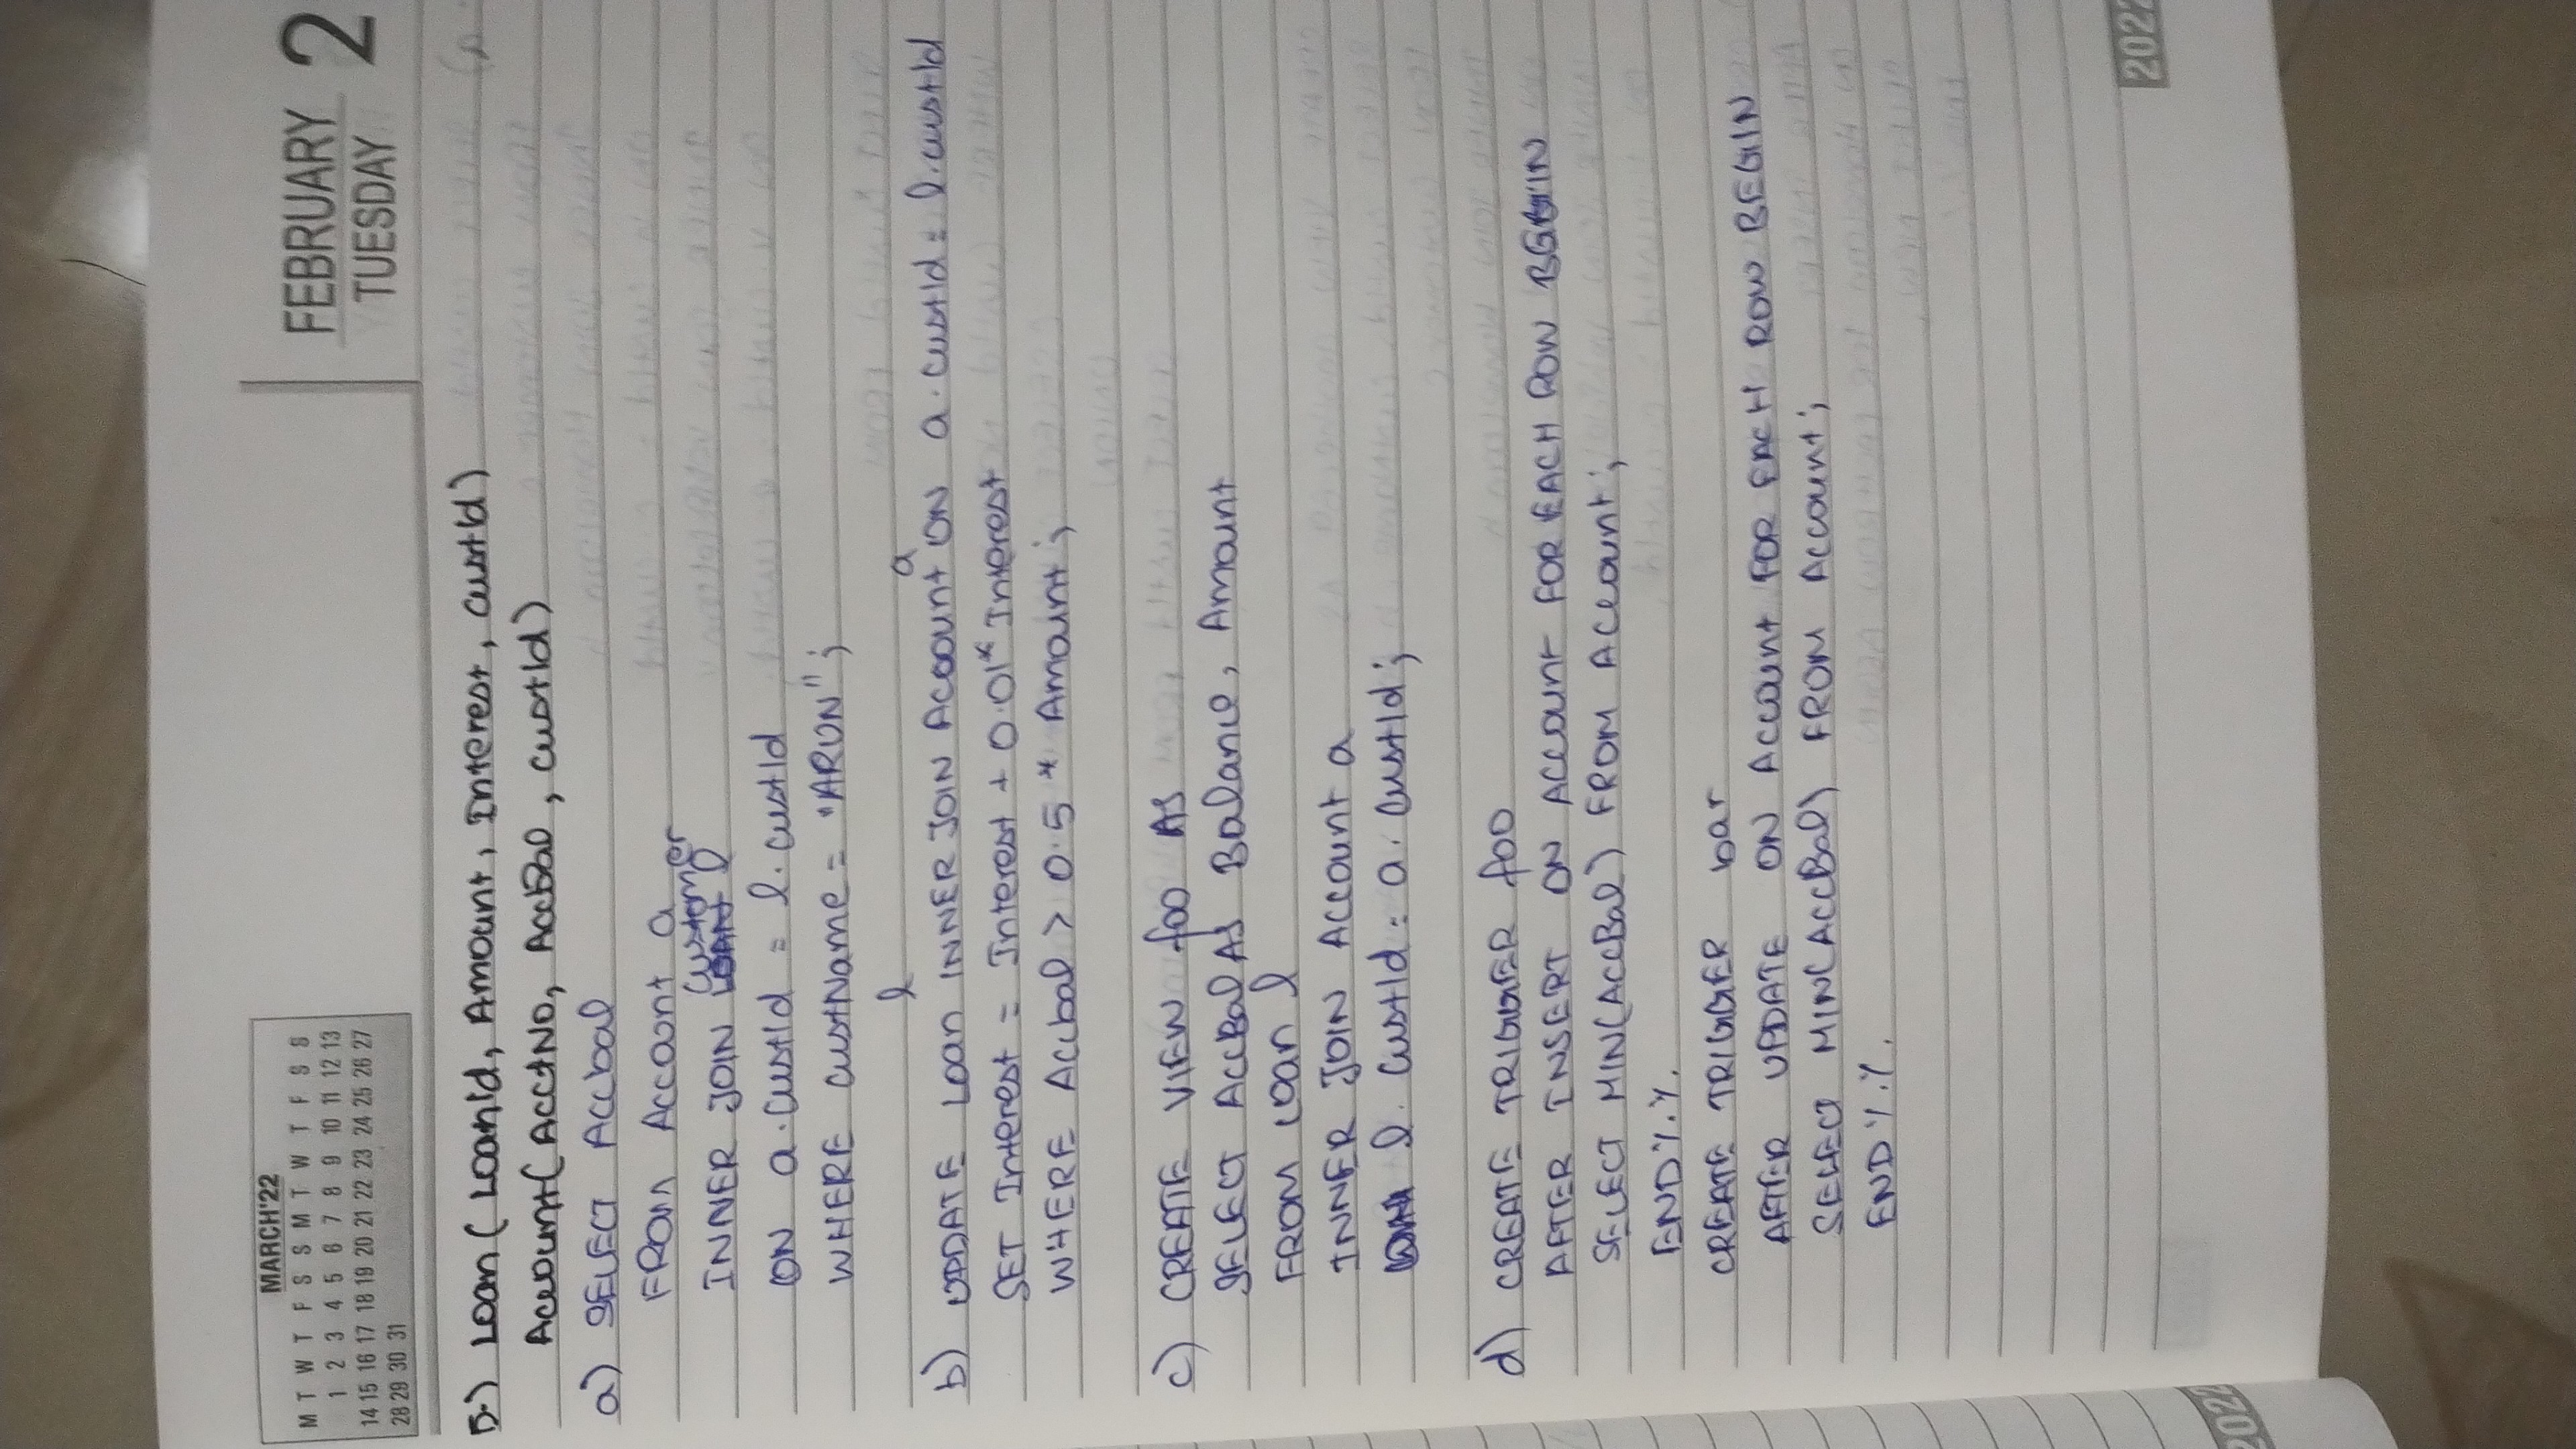 MARCH'22
M T W T F S S M T W T F S S
1 2 3 4 5 6 7 8 9 10 11 12 13
14 15 16 17 18 19 20 21 22 23 24 25 26 27
28 29 30 31
FEBRUARY 2
TUESDAY
5.) Loan ( LoanId, Amount, Interest, custId )
Account( AcctNo, AccBal, custId )
a) SELECT Accbal
FROM Account a
INNER JOIN customer l
ON a.custId = l.custId
WHERE custName = "ARUN";
b) UPDATE Loan l INNER JOIN Account a ON a.custId = l.custId
SET Interest = Interest + 0.01* Interest
WHERE Accbal > 0.5 * Amount;
c) CREATE VIEW foo AS
SELECT AccBal AS Balance, Amount
FROM Loan l
INNER JOIN Account a
l. custId = a. custId;
d) CREATE TRIGGER foo
AFTER INSERT ON Account FOR EACH ROW BEGIN
SELECT MIN(AccBal) FROM Account;
END %%
CREATE TRIGGER bar
AFTER UPDATE ON Account FOR EACH ROW BEGIN
SELECT MIN(AccBal) FROM Account;
END %%
2022
2022